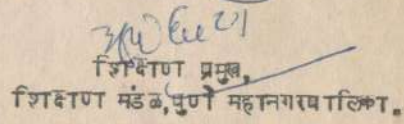 शिक्षण प्रमुख,
शिक्षण मंडळ,पुणे महानगरपालिका.